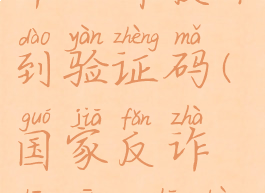 dào yàn zhèng mǎ
到验证码(
guó jiā fǎn zhà
国家反诈